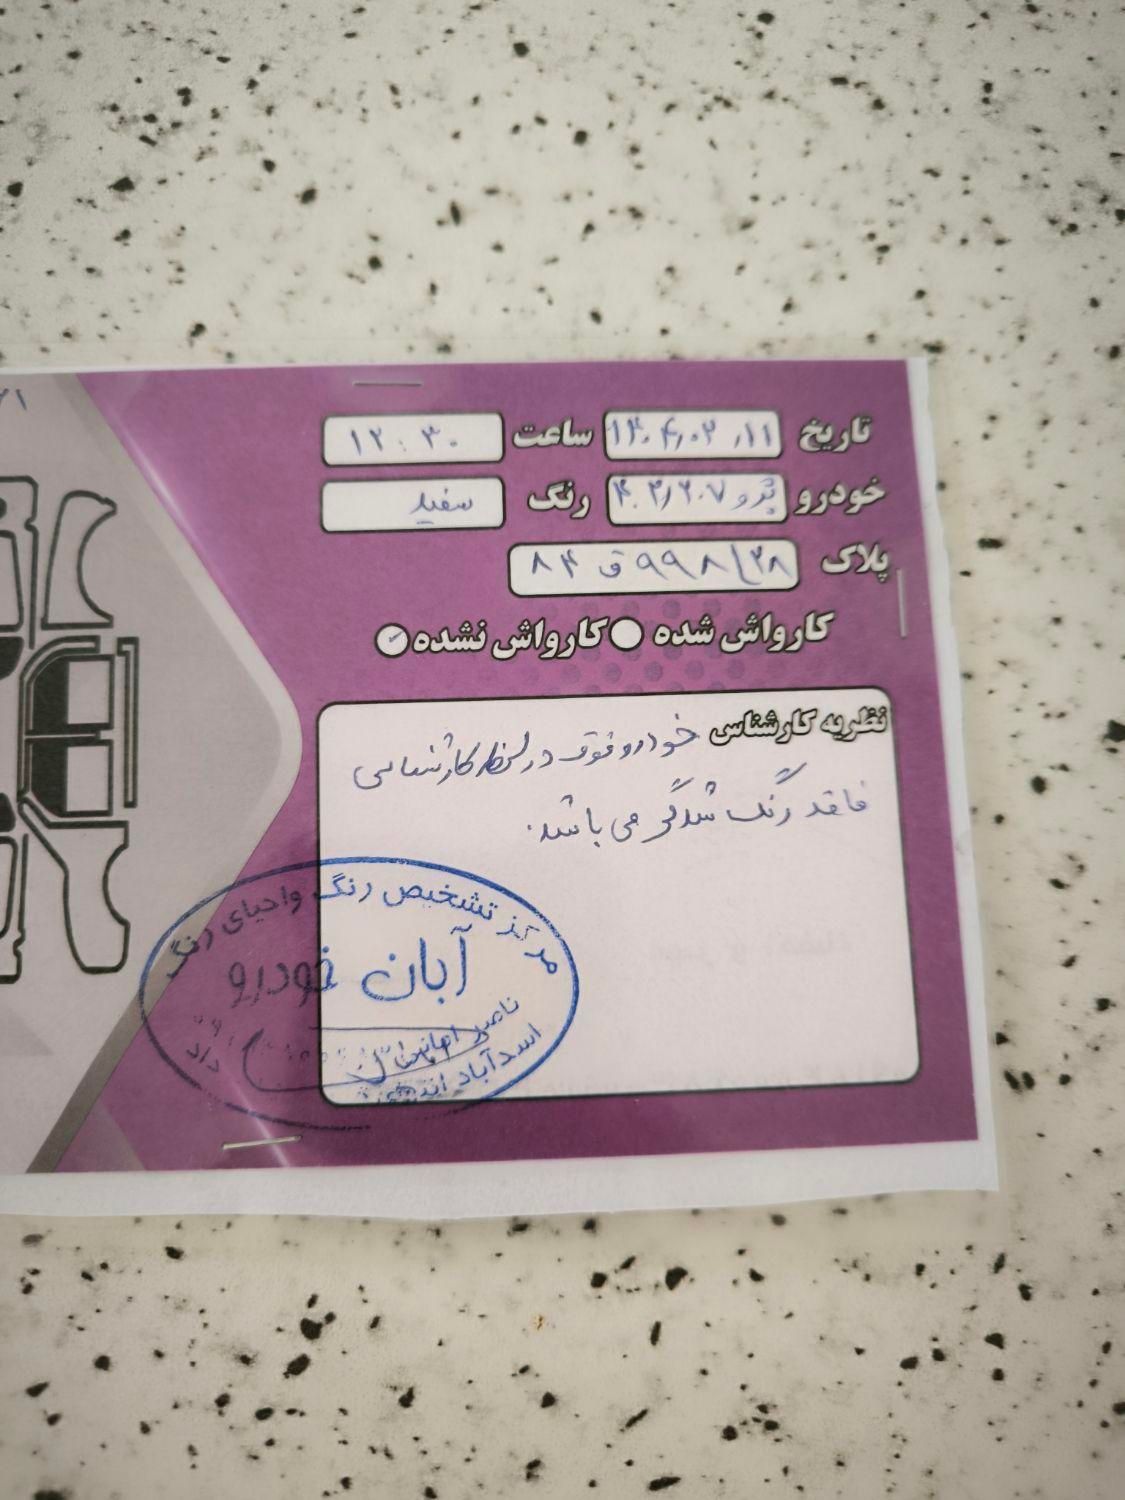 تاریخ ۱۴۰۴٫۰۲٫۱۱ ساعت ۱۲:۳۰
خودرو پژو ۲۰۷٫۴۰۴ رنگ سفید
پلاک ۹۹۸ ق ۸۴
کارواش شده کارواش نشده
نظریه کارشناس خودرو فوق در لحظه کارشناسی
فاقد رنگ شدگی می باشد.
مرکز تشخیص رنگ واحیای رنگ
آبان خودرو
ناصر
اسدآباد